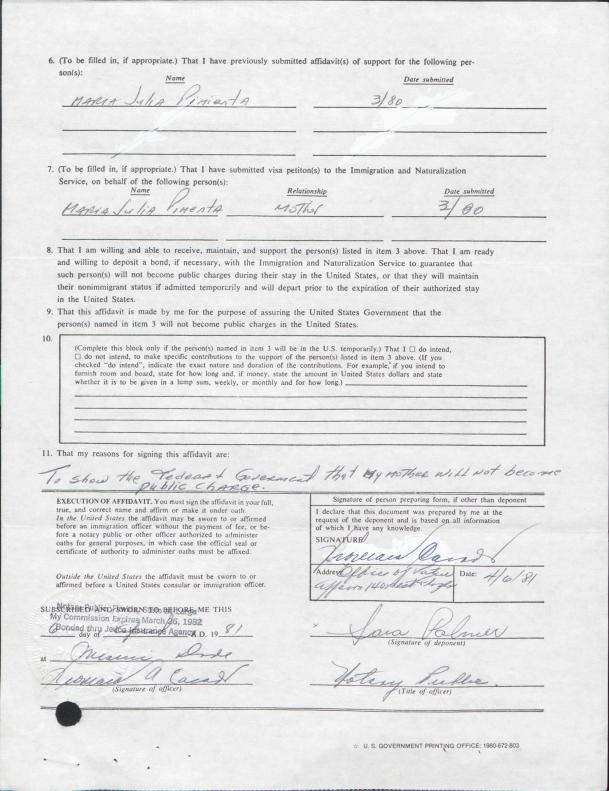 6. (To be filled in, if appropriate.) That I have previously submitted affidavit(s) of support for the following per-
son(s):
Name Date submitted
MARIA Julia Pimienta 3/80
7. (To be filled in, if appropriate.) That I have submitted visa petiton(s) to the Immigration and Naturalization
Service, on behalf of the following person(s):
Name Relationship Date submitted
MARIA Julia Pimenta Mother 3/80
8. That I am willing and able to receive, maintain, and support the person(s) listed in item 3 above. That I am ready
and willing to deposit a bond, if necessary, with the Immigration and Naturalization Service to guarantee that
such person(s) will not become public charges during their stay in the United States, or that they will maintain
their nonimmigrant status if admitted temporarily and will depart prior to the expiration of their authorized stay
in the United States.
9. That this affidavit is made by me for the purpose of assuring the United States Government that the
person(s) named in item 3 will not become public charges in the United States.
10.
(Complete this block only if the person(s) named in item 3 will be in the U.S. temporarily.) That I ☐ do intend,
☐ do not intend, to make specific contributions to the support of the person(s) listed in item 3 above. (If you
checked "do intend", indicate the exact nature and duration of the contributions. For example, if you intend to
furnish room and board, state for how long and, if money, state the amount in United States dollars and state
whether it is to be given in a lump sum, weekly, or monthly and for how long.)
11. That my reasons for signing this affidavit are:
To show the Federal Goverment that my mother will not become
public charge.
EXECUTION OF AFFIDAVIT. You must sign the affidavit in your full,
true, and correct name and affirm or make it under oath.
In the United States the affidavit may be sworn to or affirmed
before an immigration officer without the payment of fee, or be-
fore a notary public or other officer authorized to administer
oaths for general purposes, in which case the official seal or
certificate of authority to administer oaths must be affixed.
Outside the United States the affidavit must be sworn to or
affirmed before a United States consular or immigration officer.
Signature of person preparing form, if other than deponent
I declare that this document was prepared by me at the
request of the deponent and is based on all information
of which I have any knowledge.
SIGNATURE
Address Office of Date: 4/6/81
Affairs 140 West
SUBSCRIBED AND SWORN TO BEFORE ME THIS
Notary Public, Florida
My Commission Expires March 26, 1982
Bonded thru Jedco Insurance Agency
day of A.D. 19 81
Sara Palmer
(Signature of deponent)
at Miami Dade
(Signature of officer)
Notary Public.
(Title of officer)
☆ U. S. GOVERNMENT PRINTING OFFICE: 1980-672-803